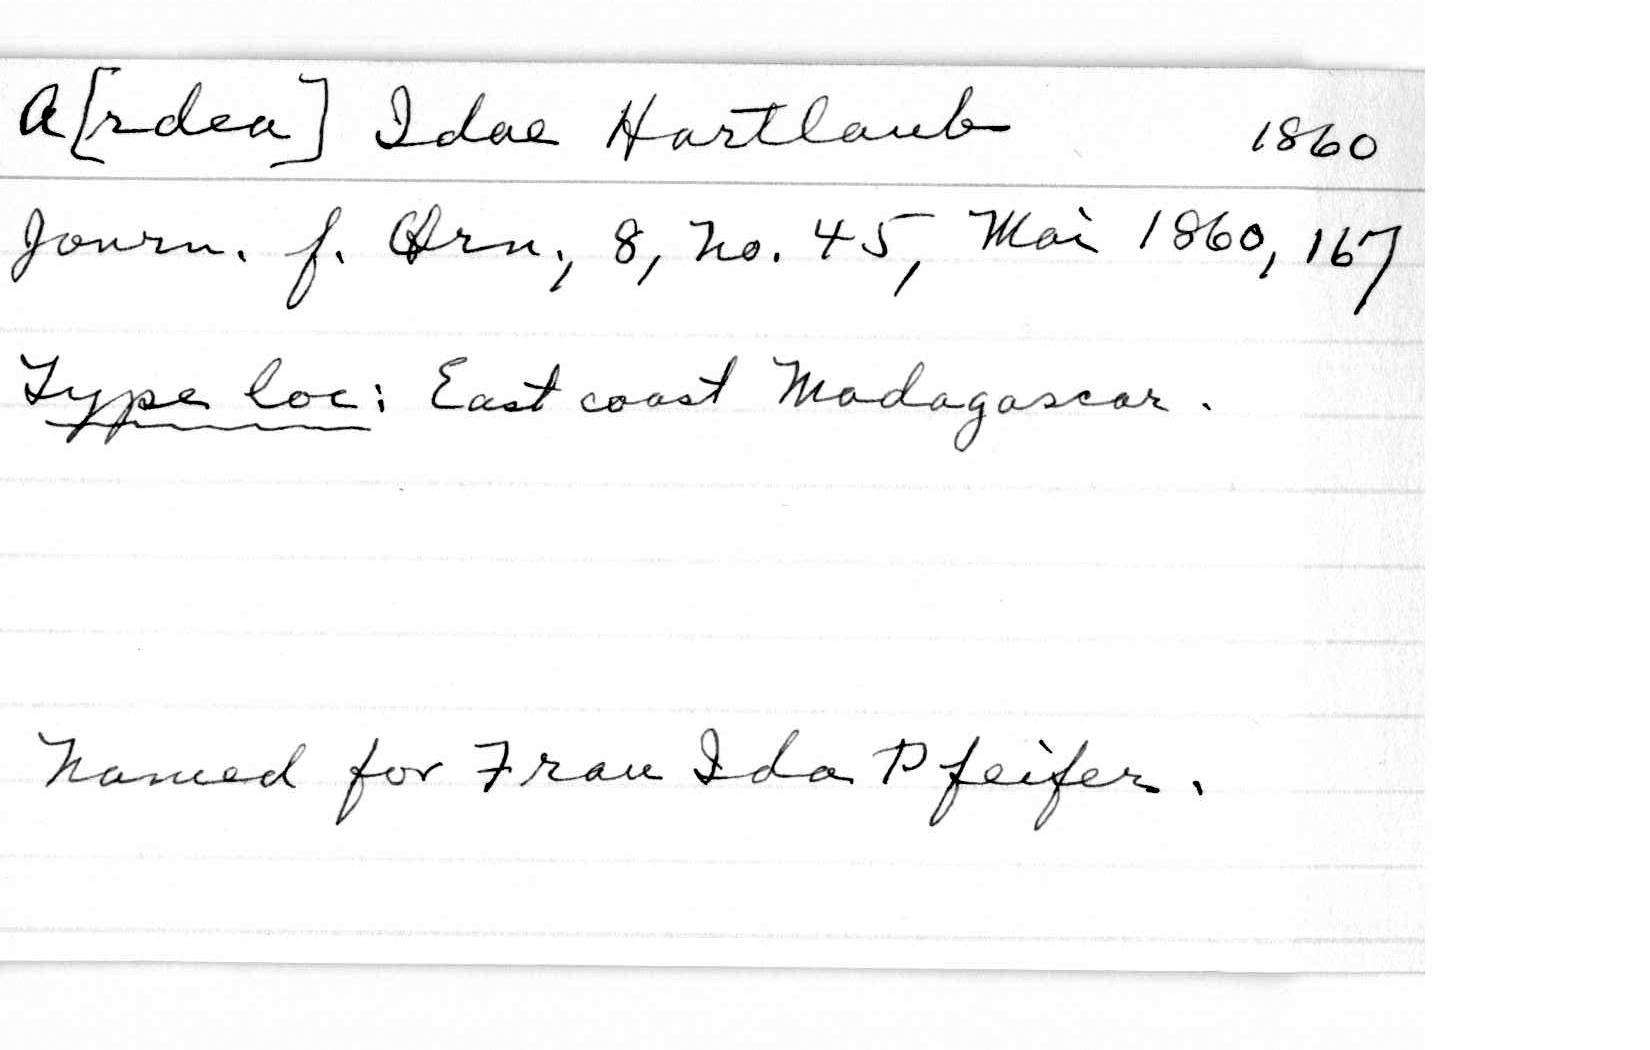 A[rdea] Idae Hartlaub 1860
Journ. f. Orn., 8, no. 45, Mai 1860, 167
Type loc: East coast Madagascar.
Named for Frau Ida Pfeifer.